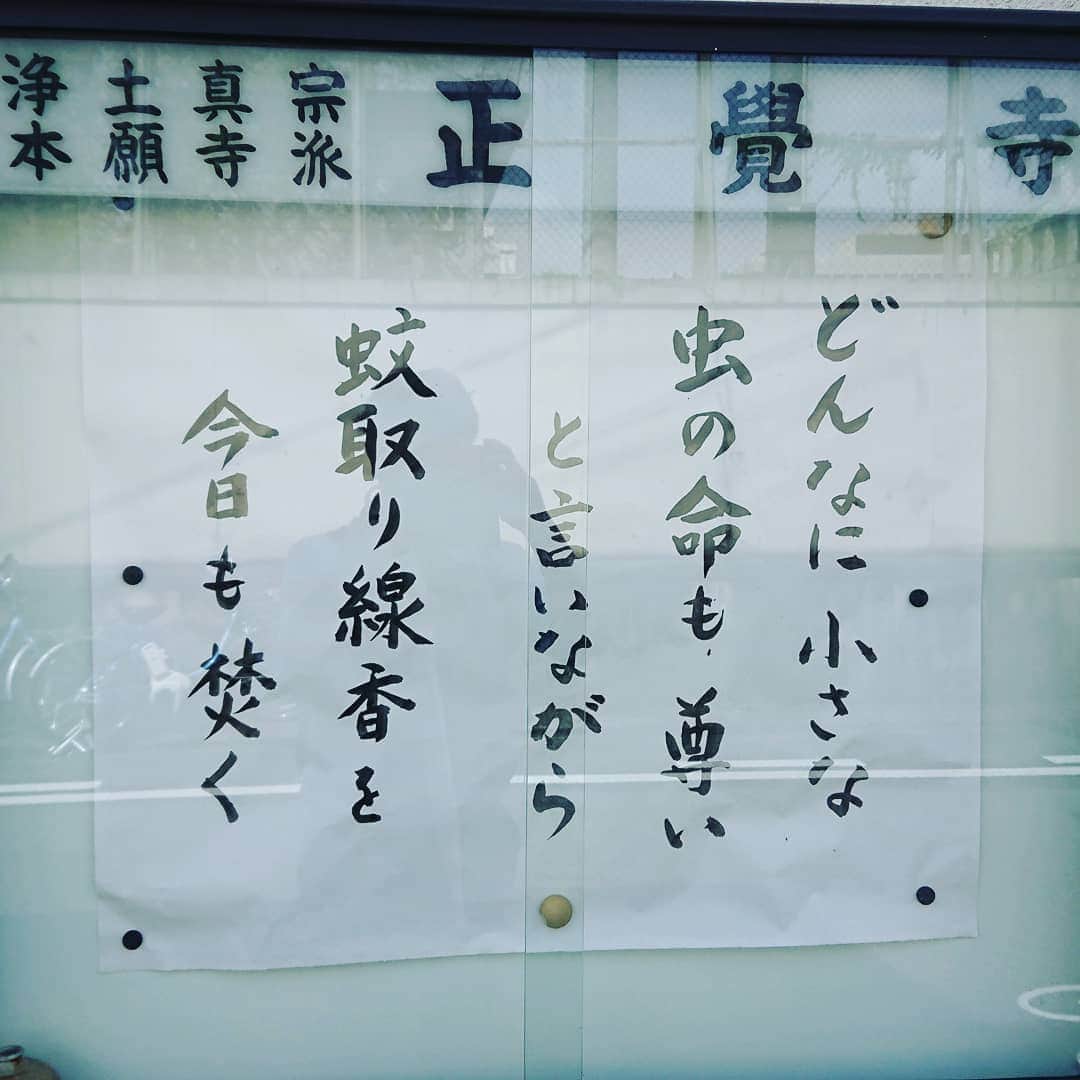 浄土真宗
本願寺派
正覺寺
どんなに小さな
虫の命も尊い
と言いながら
蚊取り線香を
今日も焚く